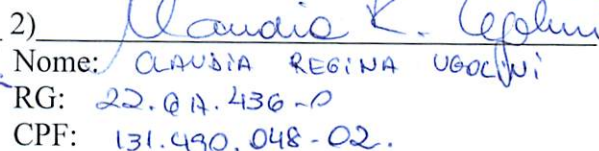 2) Claudia R. Ugolini
Nome: CLAUDIA REGINA UGOLINI
RG:
CPF: 131.490.048-02.